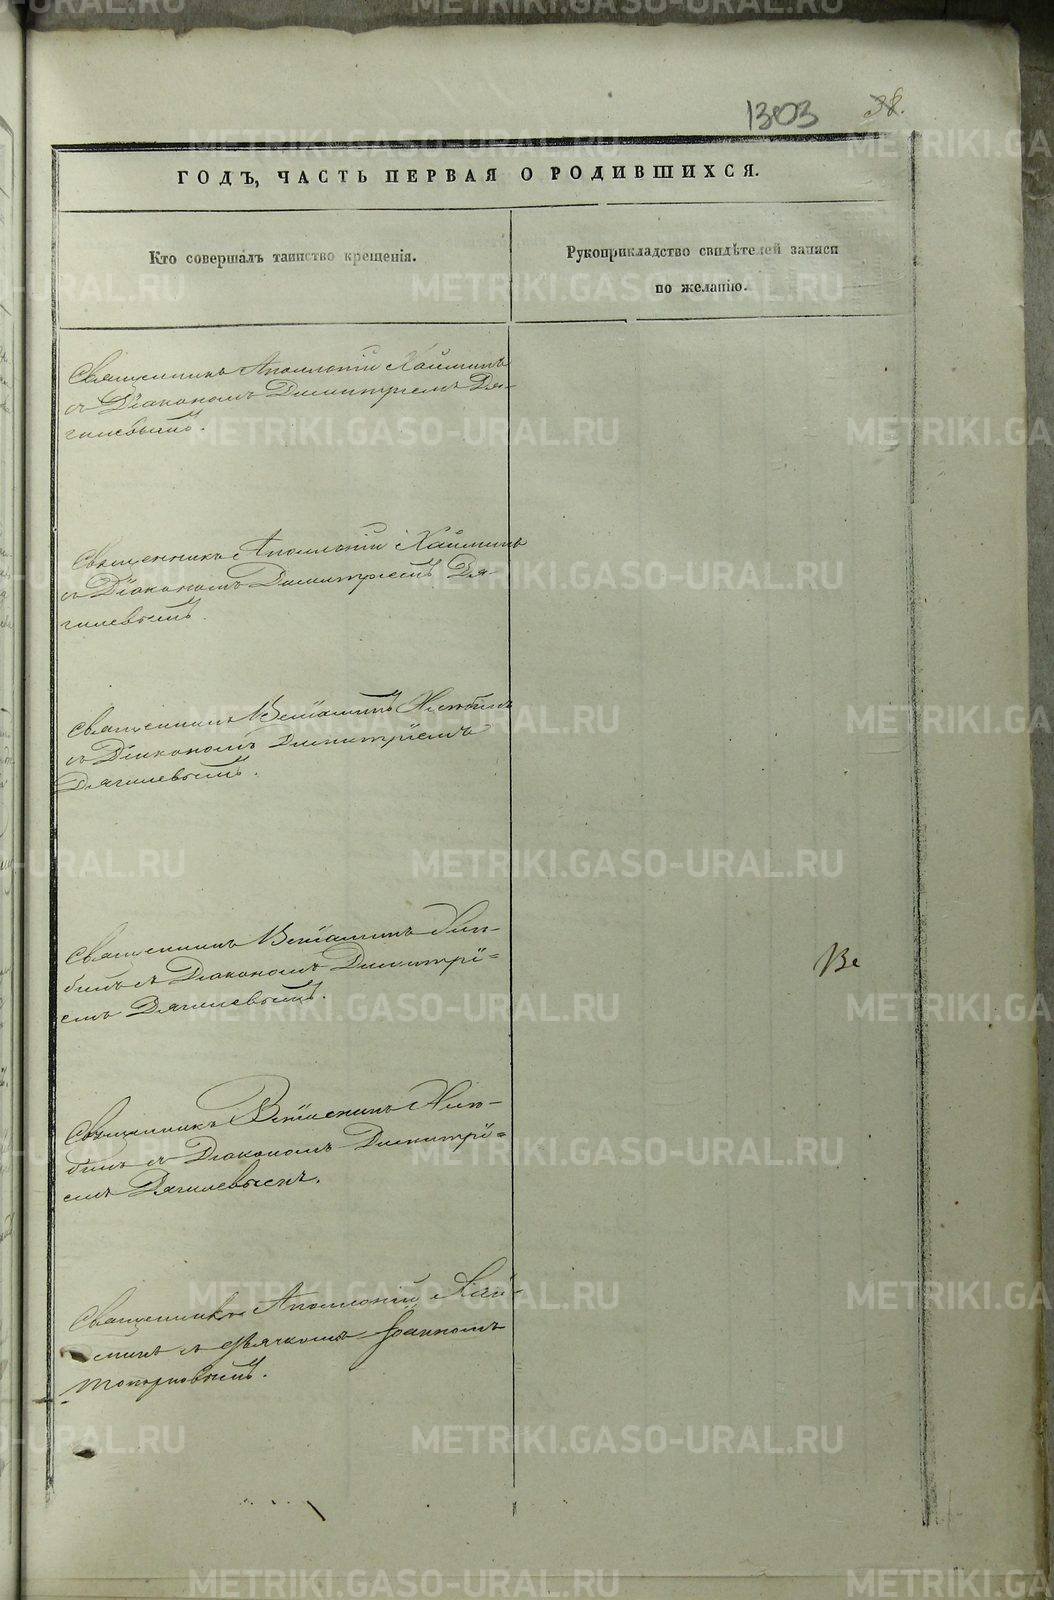 1303 38.
ГОДЪ, ЧАСТЬ ПЕРВАЯ О РОДИВШИХСЯ.
Кто совершалъ таинство крещенія.
Рукоприкладство свидѣтелей записи
по желанію.
Священникъ Аполлоній Хайминъ
съ Діакономъ Димитріемъ Дя-
гилевымъ.
Священникъ Аполлоній Хайминъ
съ Діакономъ Димитріемъ Дя-
гилевымъ.
Священникъ Веніаминъ
съ Діакономъ Димитріемъ
Дягилевымъ.
Священникъ Веніаминъ
съ Діакономъ Димитрі=
емъ Дягилевымъ.
Ве
Священникъ Веніаминъ
съ Діакономъ Димитрі=
емъ Дягилевымъ.
Священникъ Аполлоній Хай-
минъ съ Дьячкомъ Іоанномъ
METRIKI.GASO-URAL.RU